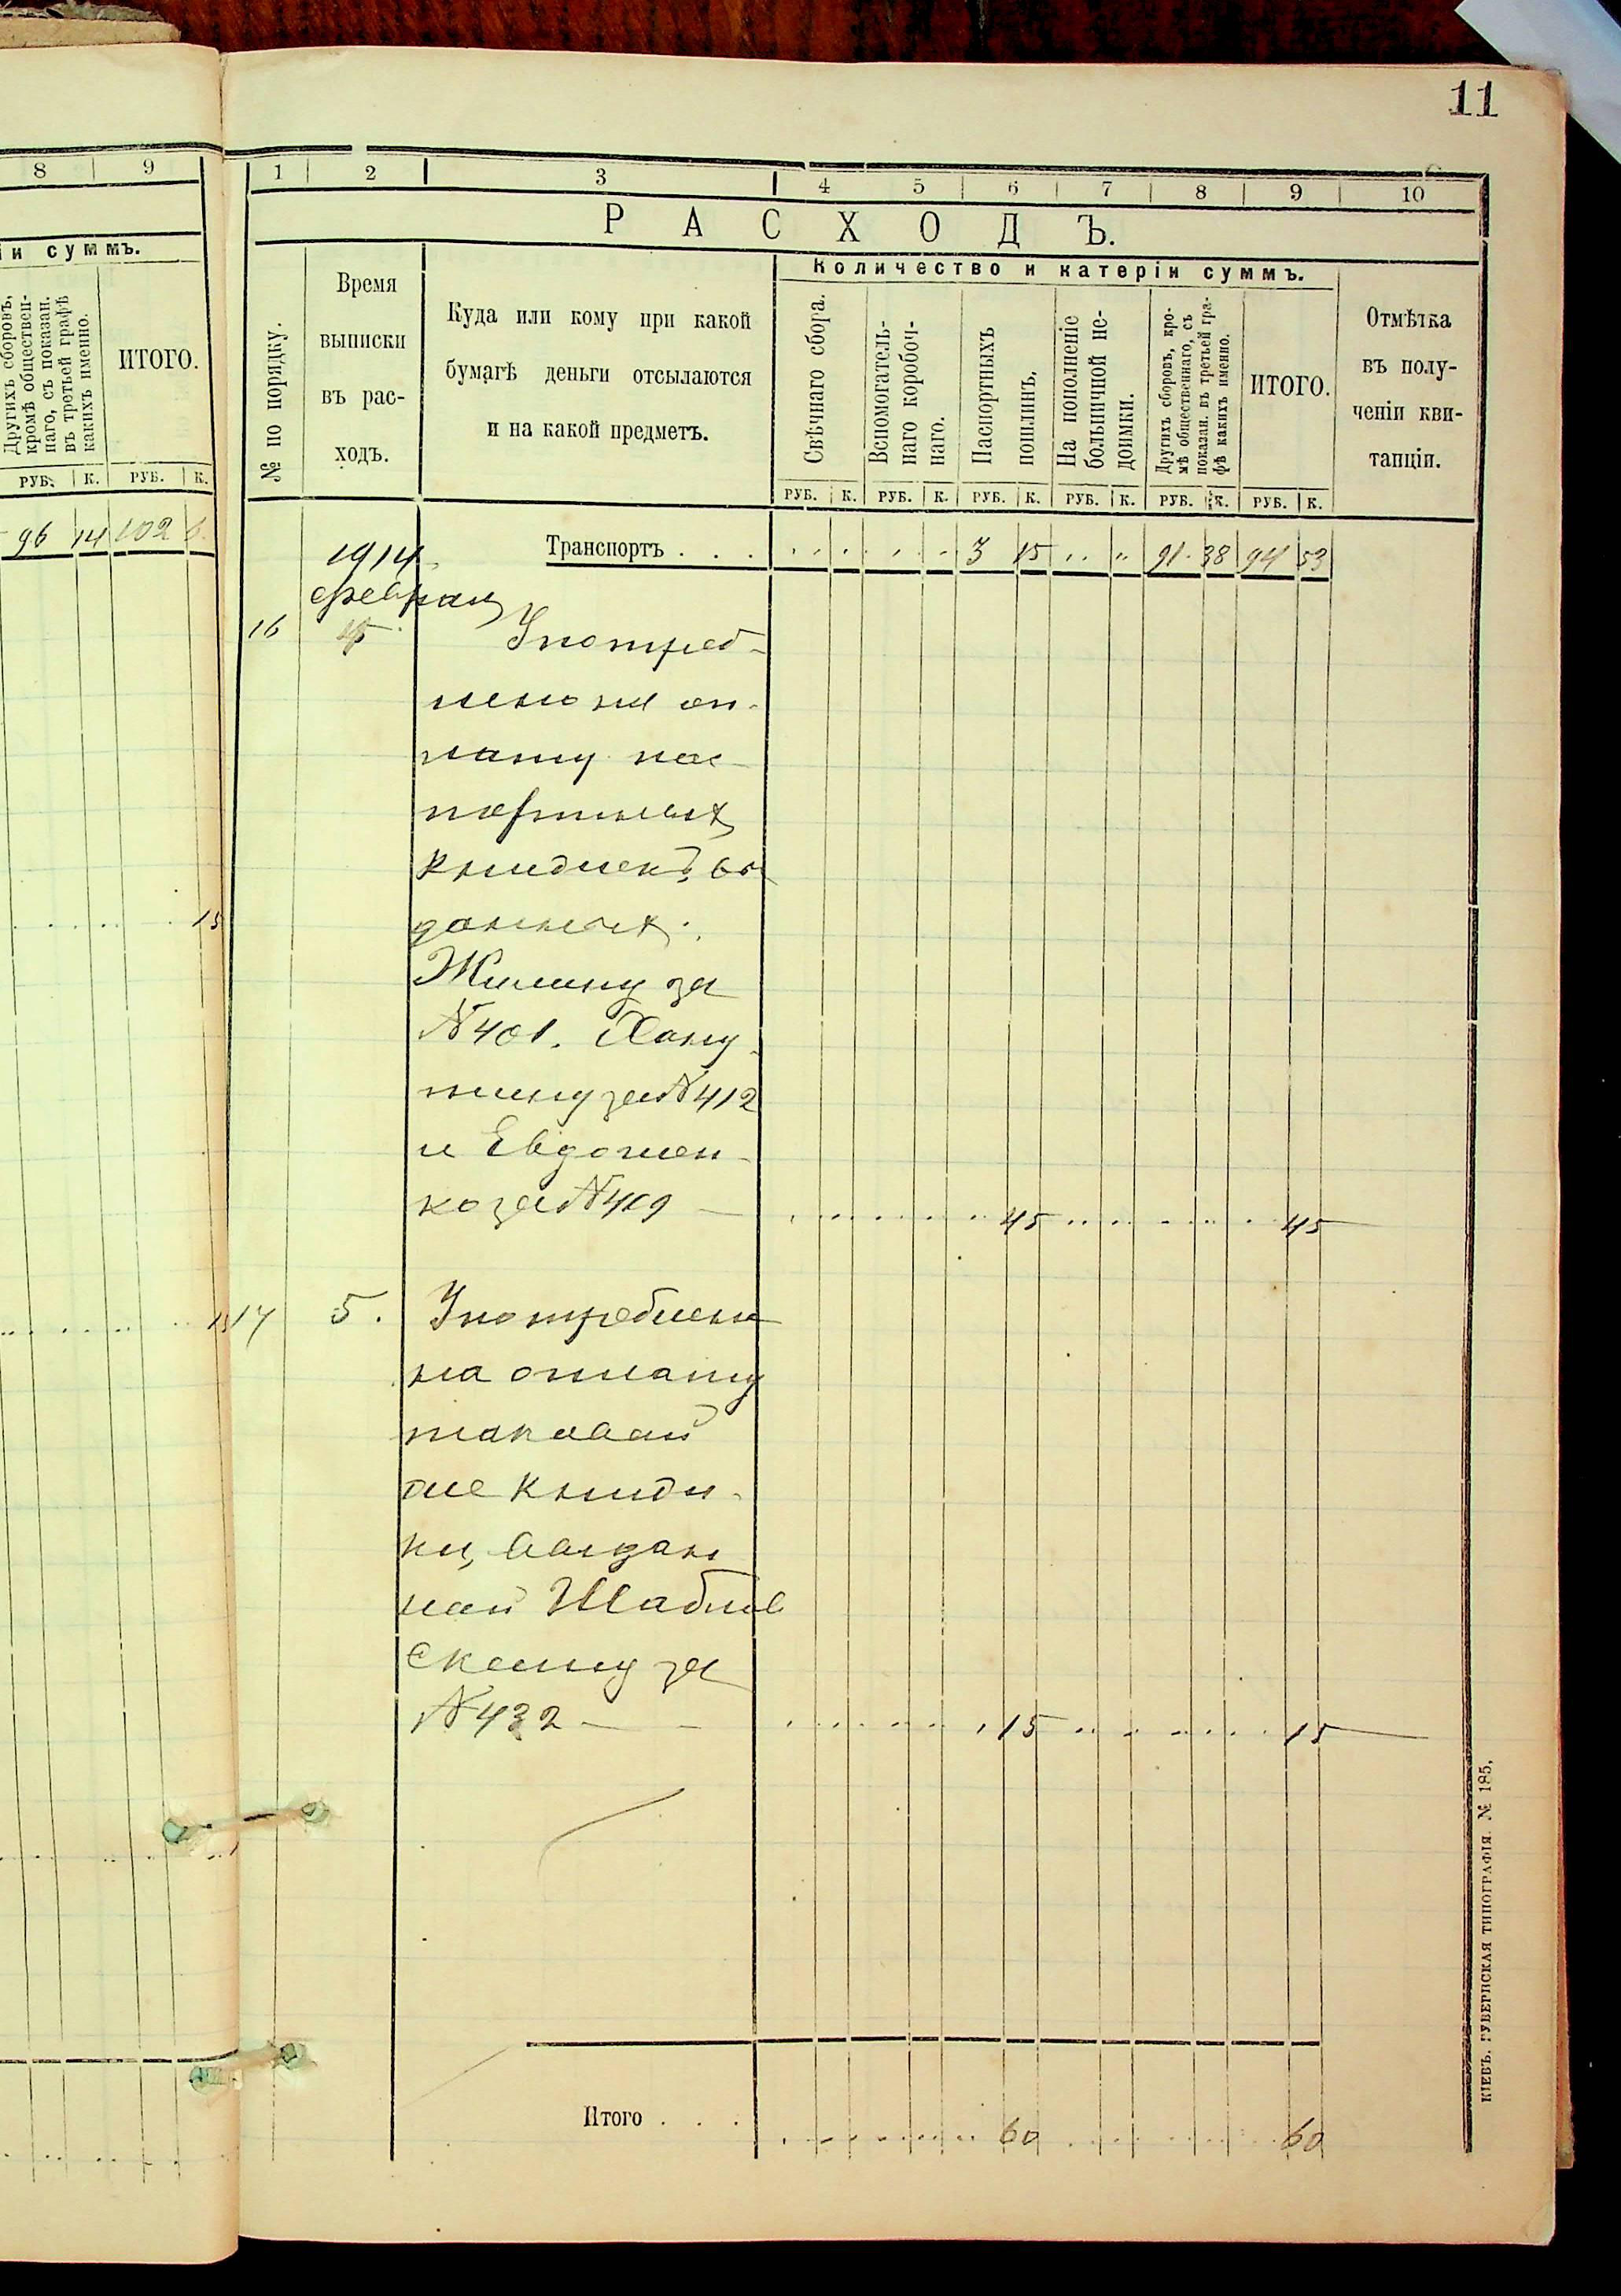 11
8 9
и суммъ.
Другихъ сборовъ,
кромѣ обществен-
наго, съ показан.
въ третьей графѣ
какихъ именно.
ИТОГО.
РУБ. К. РУБ. К.
96 14 102
15
1 2 3 4 5 6 7 8 9 10
РАСХОДЪ.
№ по порядку.
Время
выписки
въ рас-
ходъ.
Куда или кому при какой
бумагѣ деньги отсылаются
и на какой предметъ.
Количество и катеріи суммъ.
Свѣчнаго сбора.
Вспомогатель-
наго коробоч-
наго.
Паспортныхъ
пошлинъ.
На пополненіе
больничной не-
доимки.
Другихъ сборовъ, кро-
мѣ общественнаго, съ
показан. въ третьей гра-
фѣ какихъ именно.
ИТОГО.
Отмѣтка
въ полу-
ченіи кви-
танціи.
РУБ. К. РУБ. К. РУБ. К. РУБ. К. РУБ. К. РУБ. К.
Транспортъ . . . 3 15 91 38 94 53
1914
февраля
16 Употреб-
лено на оп-
лату пас-
портныхъ
книжекъ, вы
данныхъ:
Жилину за
№ 401. Хану
тину за № 412
и Евдошен-
ко за № 409 — 45 45
17 5. Употреблено
на оплату
таковой
же книж-
ки, выдан
ной Шаблов
скому за
№ 432 — — 15 15
Итого . . . 60 60
КІЕВЪ. ГУБЕРНСКАЯ ТИПОГРАФІЯ. № 185.